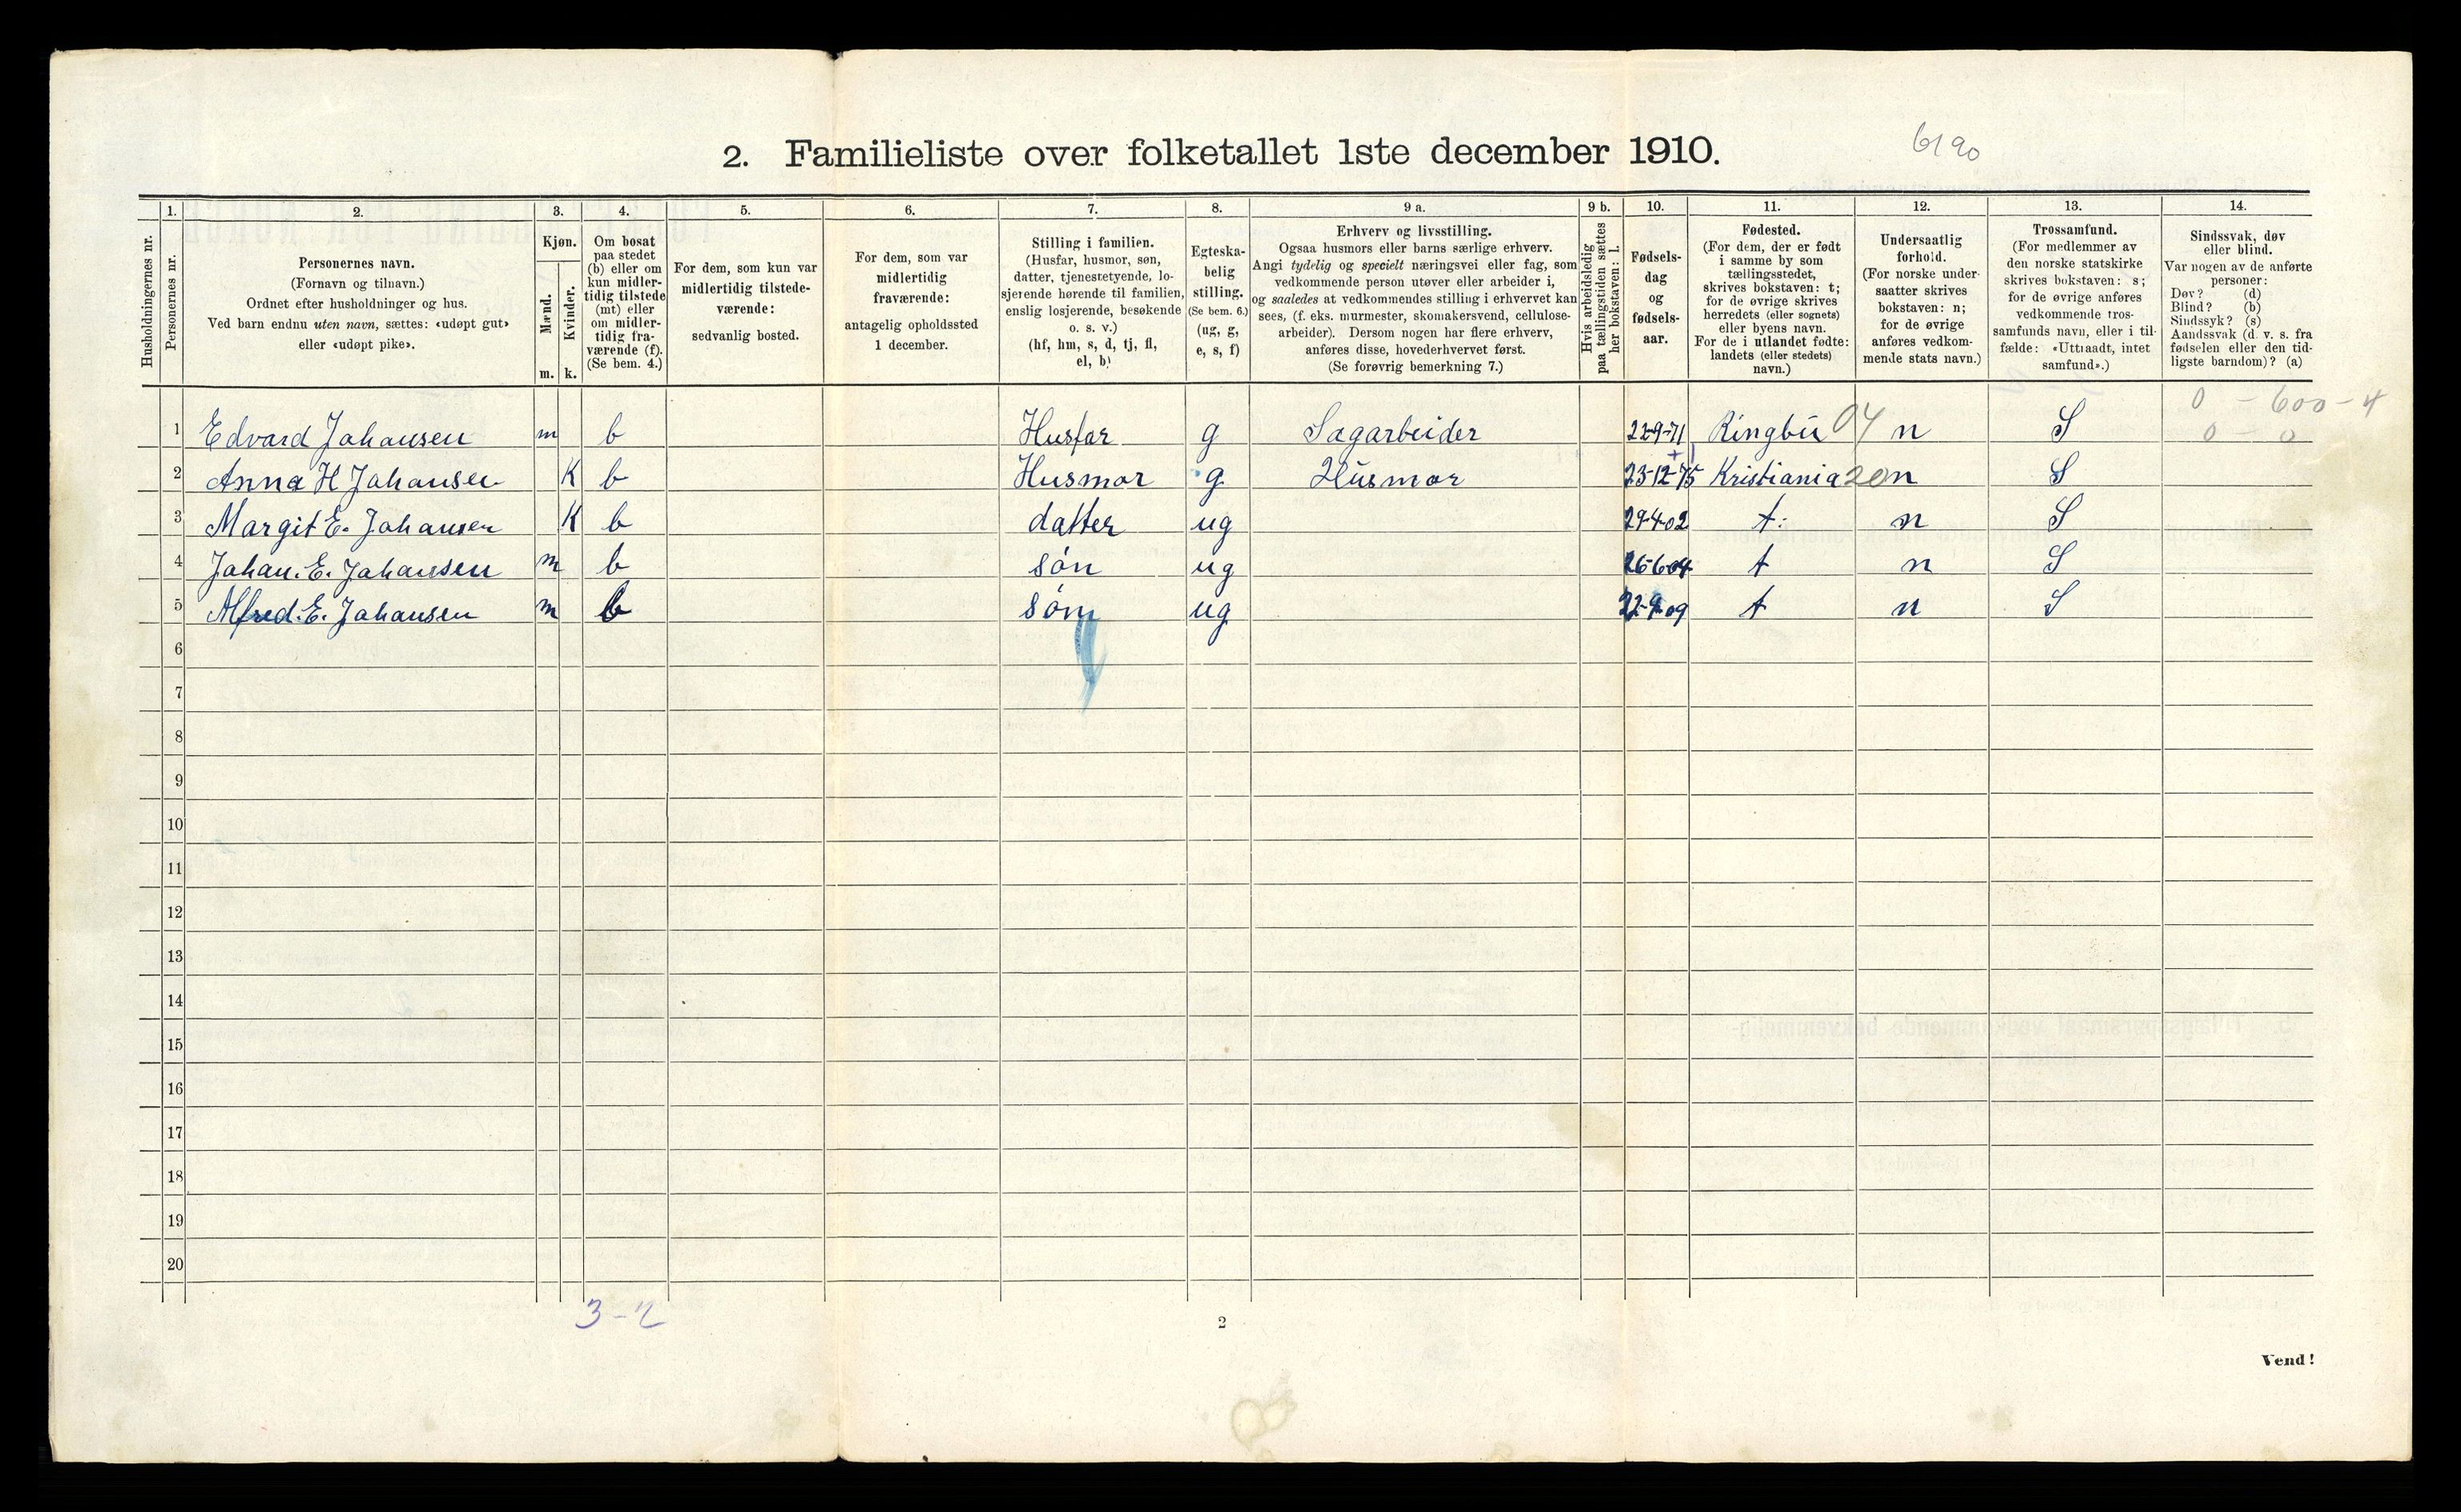 2. Familieliste over folketallet 1ste december 1910.
6190
1. 2. 3. 4. 5. 6. 7. 8. 9 a. 9 b. 10. 11. 12. 13. 14.
Husholdningernes nr.
Personernes nr.
Personernes navn.
(Fornavn og tilnavn.)
Ordnet efter husholdninger og hus.
Ved barn endnu uten navn, sættes: «udøpt gut»
eller «udøpt pike».
Kjøn.
Mænd.
Kvinder.
m. k.
Om bosat
paa stedet
(b) eller om
kun midler-
tidig tilstede
(mt) eller
om midler-
tidig fra-
værende (f).
(Se bem. 4.)
For dem, som kun var
midlertidig tilstede-
værende:
sedvanlig bosted.
For dem, som var
midlertidig
fraværende:
antagelig opholdssted
1 december.
Stilling i familien.
(Husfar, husmor, søn,
datter, tjenestetyende, lo-
sjerende hørende til familien,
enslig losjerende, besøkende
o. s. v.)
(hf, hm, s, d, tj, fl,
el, b)
Egteska-
belig
stilling.
(Se bem. 6.)
(ug, g,
e, s, f)
Erhverv og livsstilling.
Ogsaa husmors eller barns særlige erhverv.
Angi tydelig og specielt næringsvei eller fag, som
vedkommende person utøver eller arbeider i,
og saaledes at vedkommendes stilling i erhvervet kan
sees, (f. eks. murmester, skomakersvend, cellulose-
arbeider). Dersom nogen har flere erhverv,
anføres disse, hovederhvervet først.
(Se forøvrig bemerkning 7.)
Hvis arbeidsledig
paa tællingstiden sættes
her bokstaven: l.
Fødsels-
dag
og
fødsels-
aar.
Fødested.
(For dem, der er født
i samme by som
tællingsstedet,
skrives bokstaven: t;
for de øvrige skrives
herredets (eller sognets)
eller byens navn.
For de i utlandet fødte:
landets (eller stedets)
navn.)
Undersaatlig
forhold.
(For norske under-
saatter skrives
bokstaven: n;
for de øvrige
anføres vedkom-
mende stats navn.)
Trossamfund.
(For medlemmer av
den norske statskirke
skrives bokstaven: s;
for de øvrige anføres
vedkommende tros-
samfunds navn, eller i til-
fælde: «Uttraadt, intet
samfund».)
Sindssvak, døv
eller blind.
Var nogen av de anførte
personer:
Døv? (d)
Blind? (b)
Sindssyk? (s)
Aandssvak (d. v. s. fra
fødselen eller den tid-
ligste barndom)? (a)
0 - 600 - 4
1 Edvard Johansen m b Husfar g Sagarbeider 22-9-71 Ringbu 04 n S 0 - 0
2 Anna H Johansen K b Husmor g Husmor 23-12-75 Kristiania 20 n S
3 Margit E. Johansen K b datter ug 29-4-02 t. n S
4 Johan. E. Johansen m b søn ug 26-6-04 t n S
5 Alfred. E. Johansen m b søn ug 22-9-09 t n S
6
7
8
9
10
11
12
13
14
15
16
17
18
19
20
3-2
2
Vend!